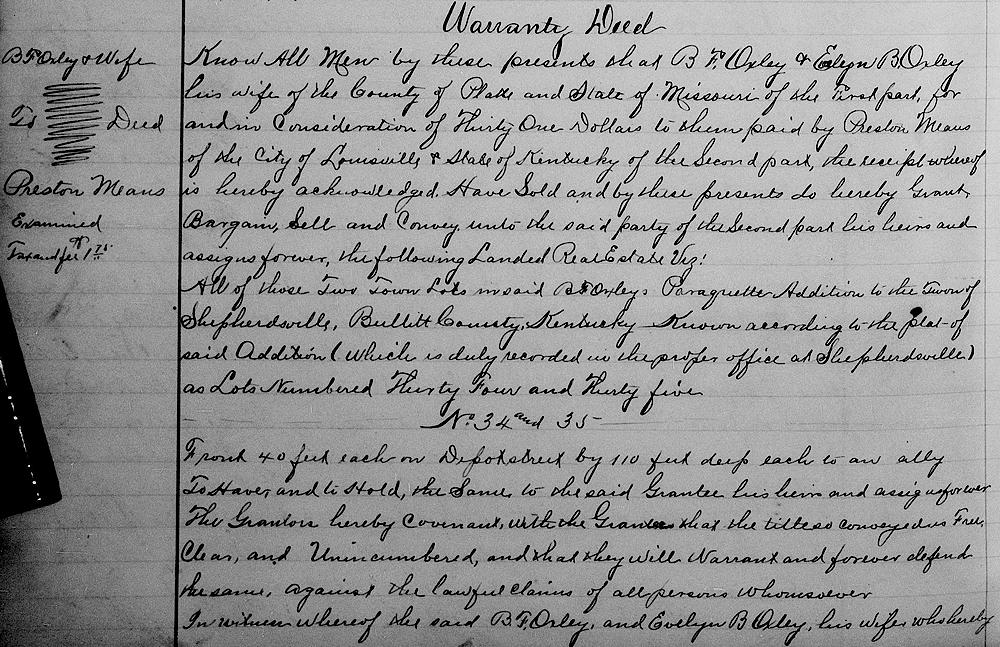 Warranty Deed
B F Oxley & Wife
To Deed
Preston Means
Examined
Tax and fee $1.75
Know All Men by these presents that B F. Oxley & Evelyn B. Oxley
his wife of the County of Platte and State of Missouri of the First part, for
and in Consideration of Thirty One Dollars to them paid by Preston Means
of the City of Louisville & State of Kentucky of the Second part, the receipt whereof
is hereby acknowledged. Have Sold and by these presents do hereby Grant,
Bargain, Sell and Convey unto the said party of the Second part his heirs and
assigns forever, the following Landed Real Estate Viz:
All of those Two Town Lots in said B F Oxleys Paraquette Addition to the Town of
Shepherdsville, Bullitt County, Kentucky Known according to the plat of
said Addition (which is duly recorded in the proper office at Shepherdsville)
as Lots Numbered Thirty Four and Thirty five
No. 34 and 35
Front 40 feet each on Depot street by 110 feet deep each to an ally
To Have, and to Hold, the Same to the said Grantee his heirs and assigns forever
The Grantors hereby Covenant, with the Grantee that the title so conveyed is Free,
Clear, and Unincumbered, and that they will Warrant and forever defend
the same, against the lawful claims of all persons whomsoever
In witness whereof the said B F. Oxley, and Evelyn B Oxley, his wife who hereby